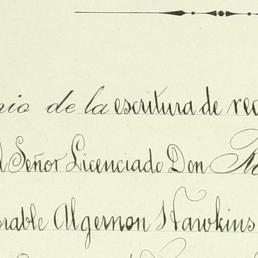 nio de la escritura de rec
l Señor Licenciado Don
orable Algernon Hawkins